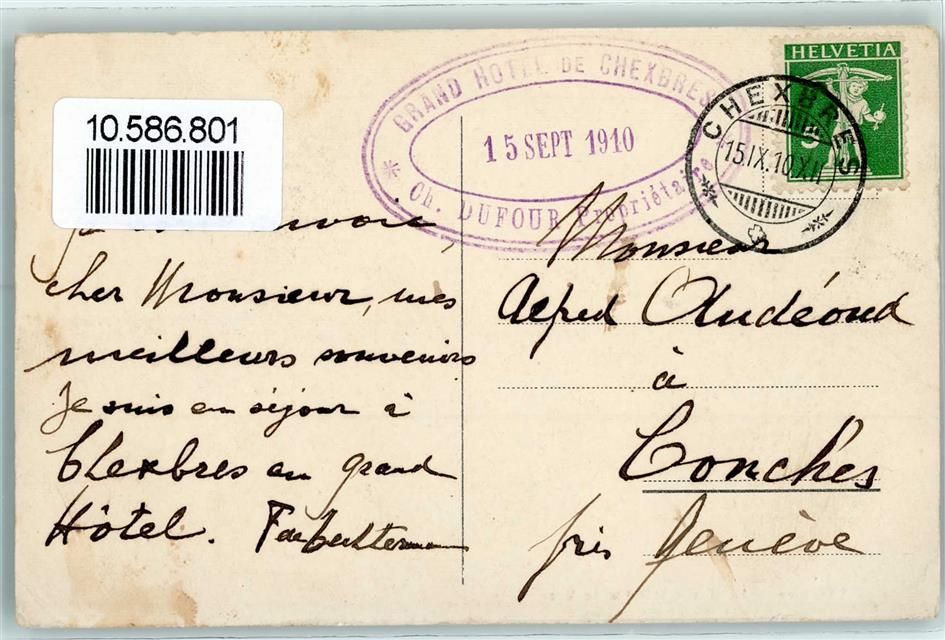 10.586.801
GRAND HOTEL DE CHEXBRES
15 SEPT 1910
Ch. DUFOUR Propriétaire
HELVETIA
5
CHEXBRES
15.IX.10.XII
cher Monsieur, mes
meilleurs souvenirs
Je suis en séjour à
Chexbres au grand
Hôtel.
Monsieur
Alfred Audéoud
à
Conches
près Genève